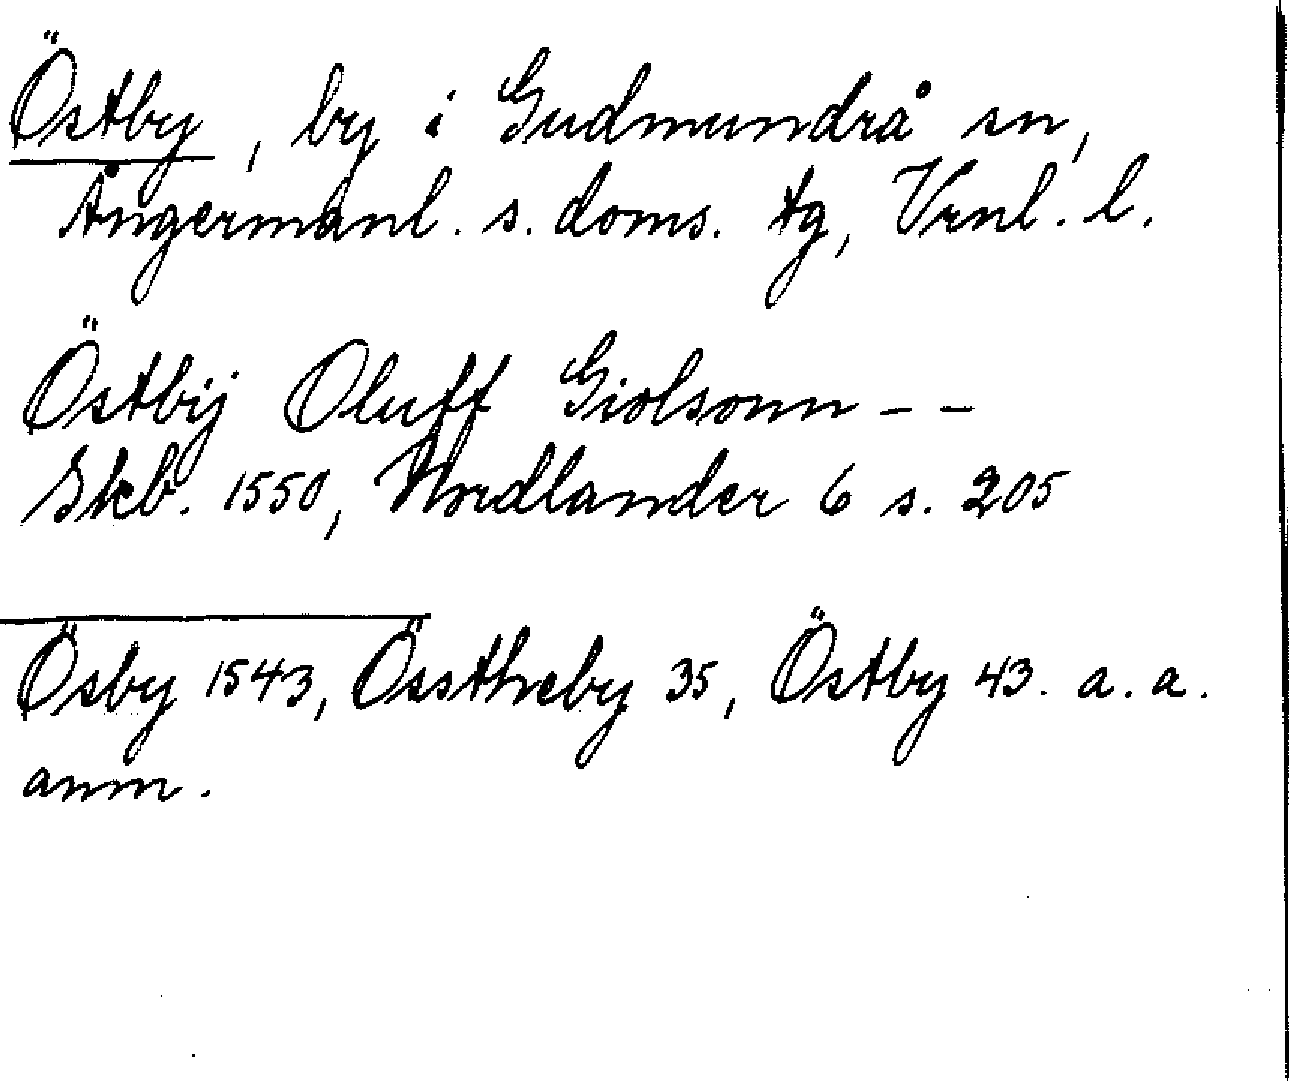 Östby, by i Gudmundrå sn,
Ångermanl. s. doms. tg, Vrnl. l.
Östbij Oluff Giolsonn - -
Skb. 1550, Nordlander 6 s. 205
Ösby 1543, Össtheby 35, Östby 43. a. a.
anm.